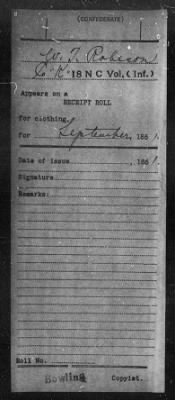 (CONFEDERATE)
W. T. Robeson
Co "K" 18 N C Vol. (Inf.)
Appears on a
RECEIPT ROLL
for clothing,
for September, 186 1.
Date of issue , 186 1.
Signature
Remarks:
Roll No.
Bowling Copyist.